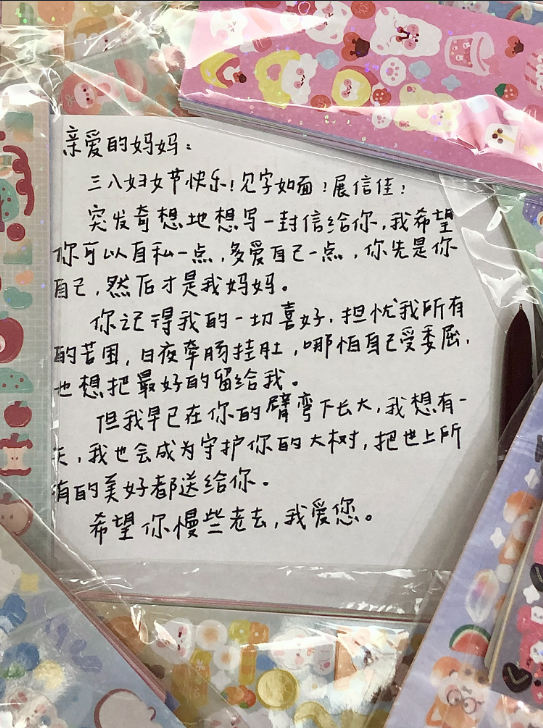 亲爱的妈妈：
三八妇女节快乐！见字如面！展信佳！
突发奇想地想写一封信给你，我希望
你可以自私一点，多爱自己一点，你先是你
自己，然后才是我妈妈。
你记得我的一切喜好，担忧我所有
的苦困，日夜牵肠挂肚，哪怕自己受委屈，
也想把最好的留给我。
但我早已在你的臂弯下长大，我想有一
天，我也会成为守护你的大树，把世上所
有的美好都送给你。
希望你慢些老去，我爱您。